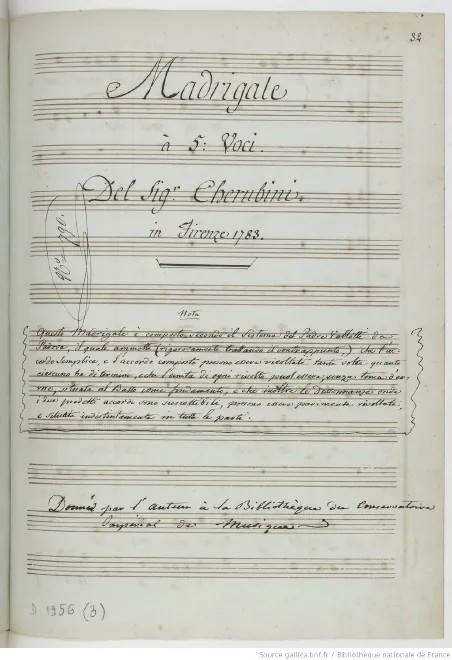 32
Madrigale
à 5: Voci.
Del Sig.r Cherubini.
in Firenze 1783.
Nota
Questo Madrigale è composto secondo il Sistema del Padre Vallotti da
Padova, il quale ammette (rigorosamente trattando il contrappunto,) che l'ac
cordo semplice, e l'accordo composto possono essere rivoltati tante volte quanti
ciascuno ha de termini, e che l'unità di ogni rivolto, può essere, senza tema d'er
rore, situata al Basso come fondamento, e che inoltre le dissonanze onde
i due predetti accordi sono suscettibili, possono essere parimente rivoltate,
e situate indistintamente in tutte le parti.
Donné par l'auteur à la Bibliothèque du Conservatoire
Impérial de Musique
D 1956 (3)
Source gallica.bnf.fr / Bibliothèque nationale de France